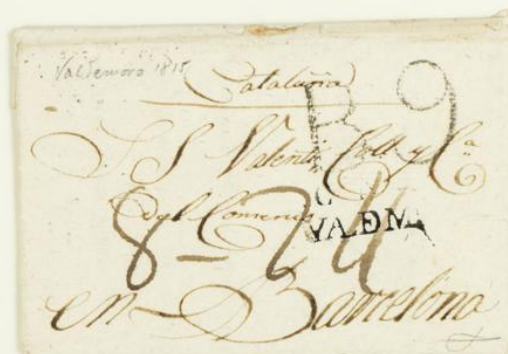 Valdemoro 1815
Cataluña
R 9
S. S. Valentin Coll y Cª
del Comercio
VALDM
8 - 24
en Barcelona